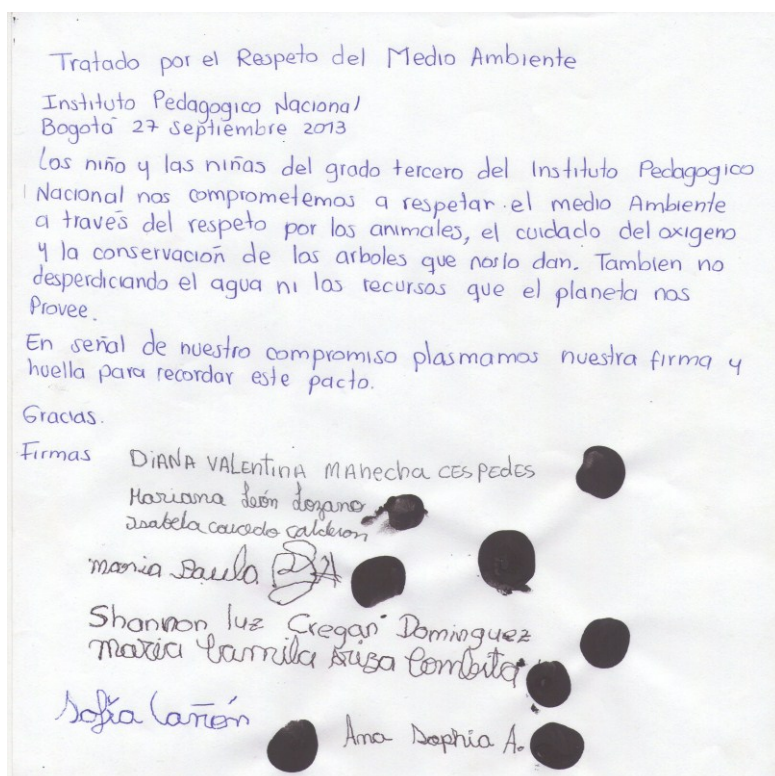 Tratado por el Respeto del Medio Ambiente
Instituto Pedagogico Nacional
Bogotá 27 septiembre 2013
Los niño y las niñas del grado tercero del Instituto Pedagogico
Nacional nos comprometemos a respetar el medio Ambiente
a través del respeto por los animales, el cuidado del oxigeno
y la conservación de los arboles que nos lo dan. Tambien no
desperdiciando el agua ni los recursos que el planeta nos
Provee.
En señal de nuestro compromiso plasmamos nuestra firma y
huella para recordar este pacto.
Gracias.
Firmas
DiANA VALentinA MAHecha CESPEDES
Mariana León Lozano
Isabela caicedo calderon
maria Paula
Shannon luz Cregan Dominguez
maria Camila Ariza Combita
Sofía Cañón
Ana Sophia A.